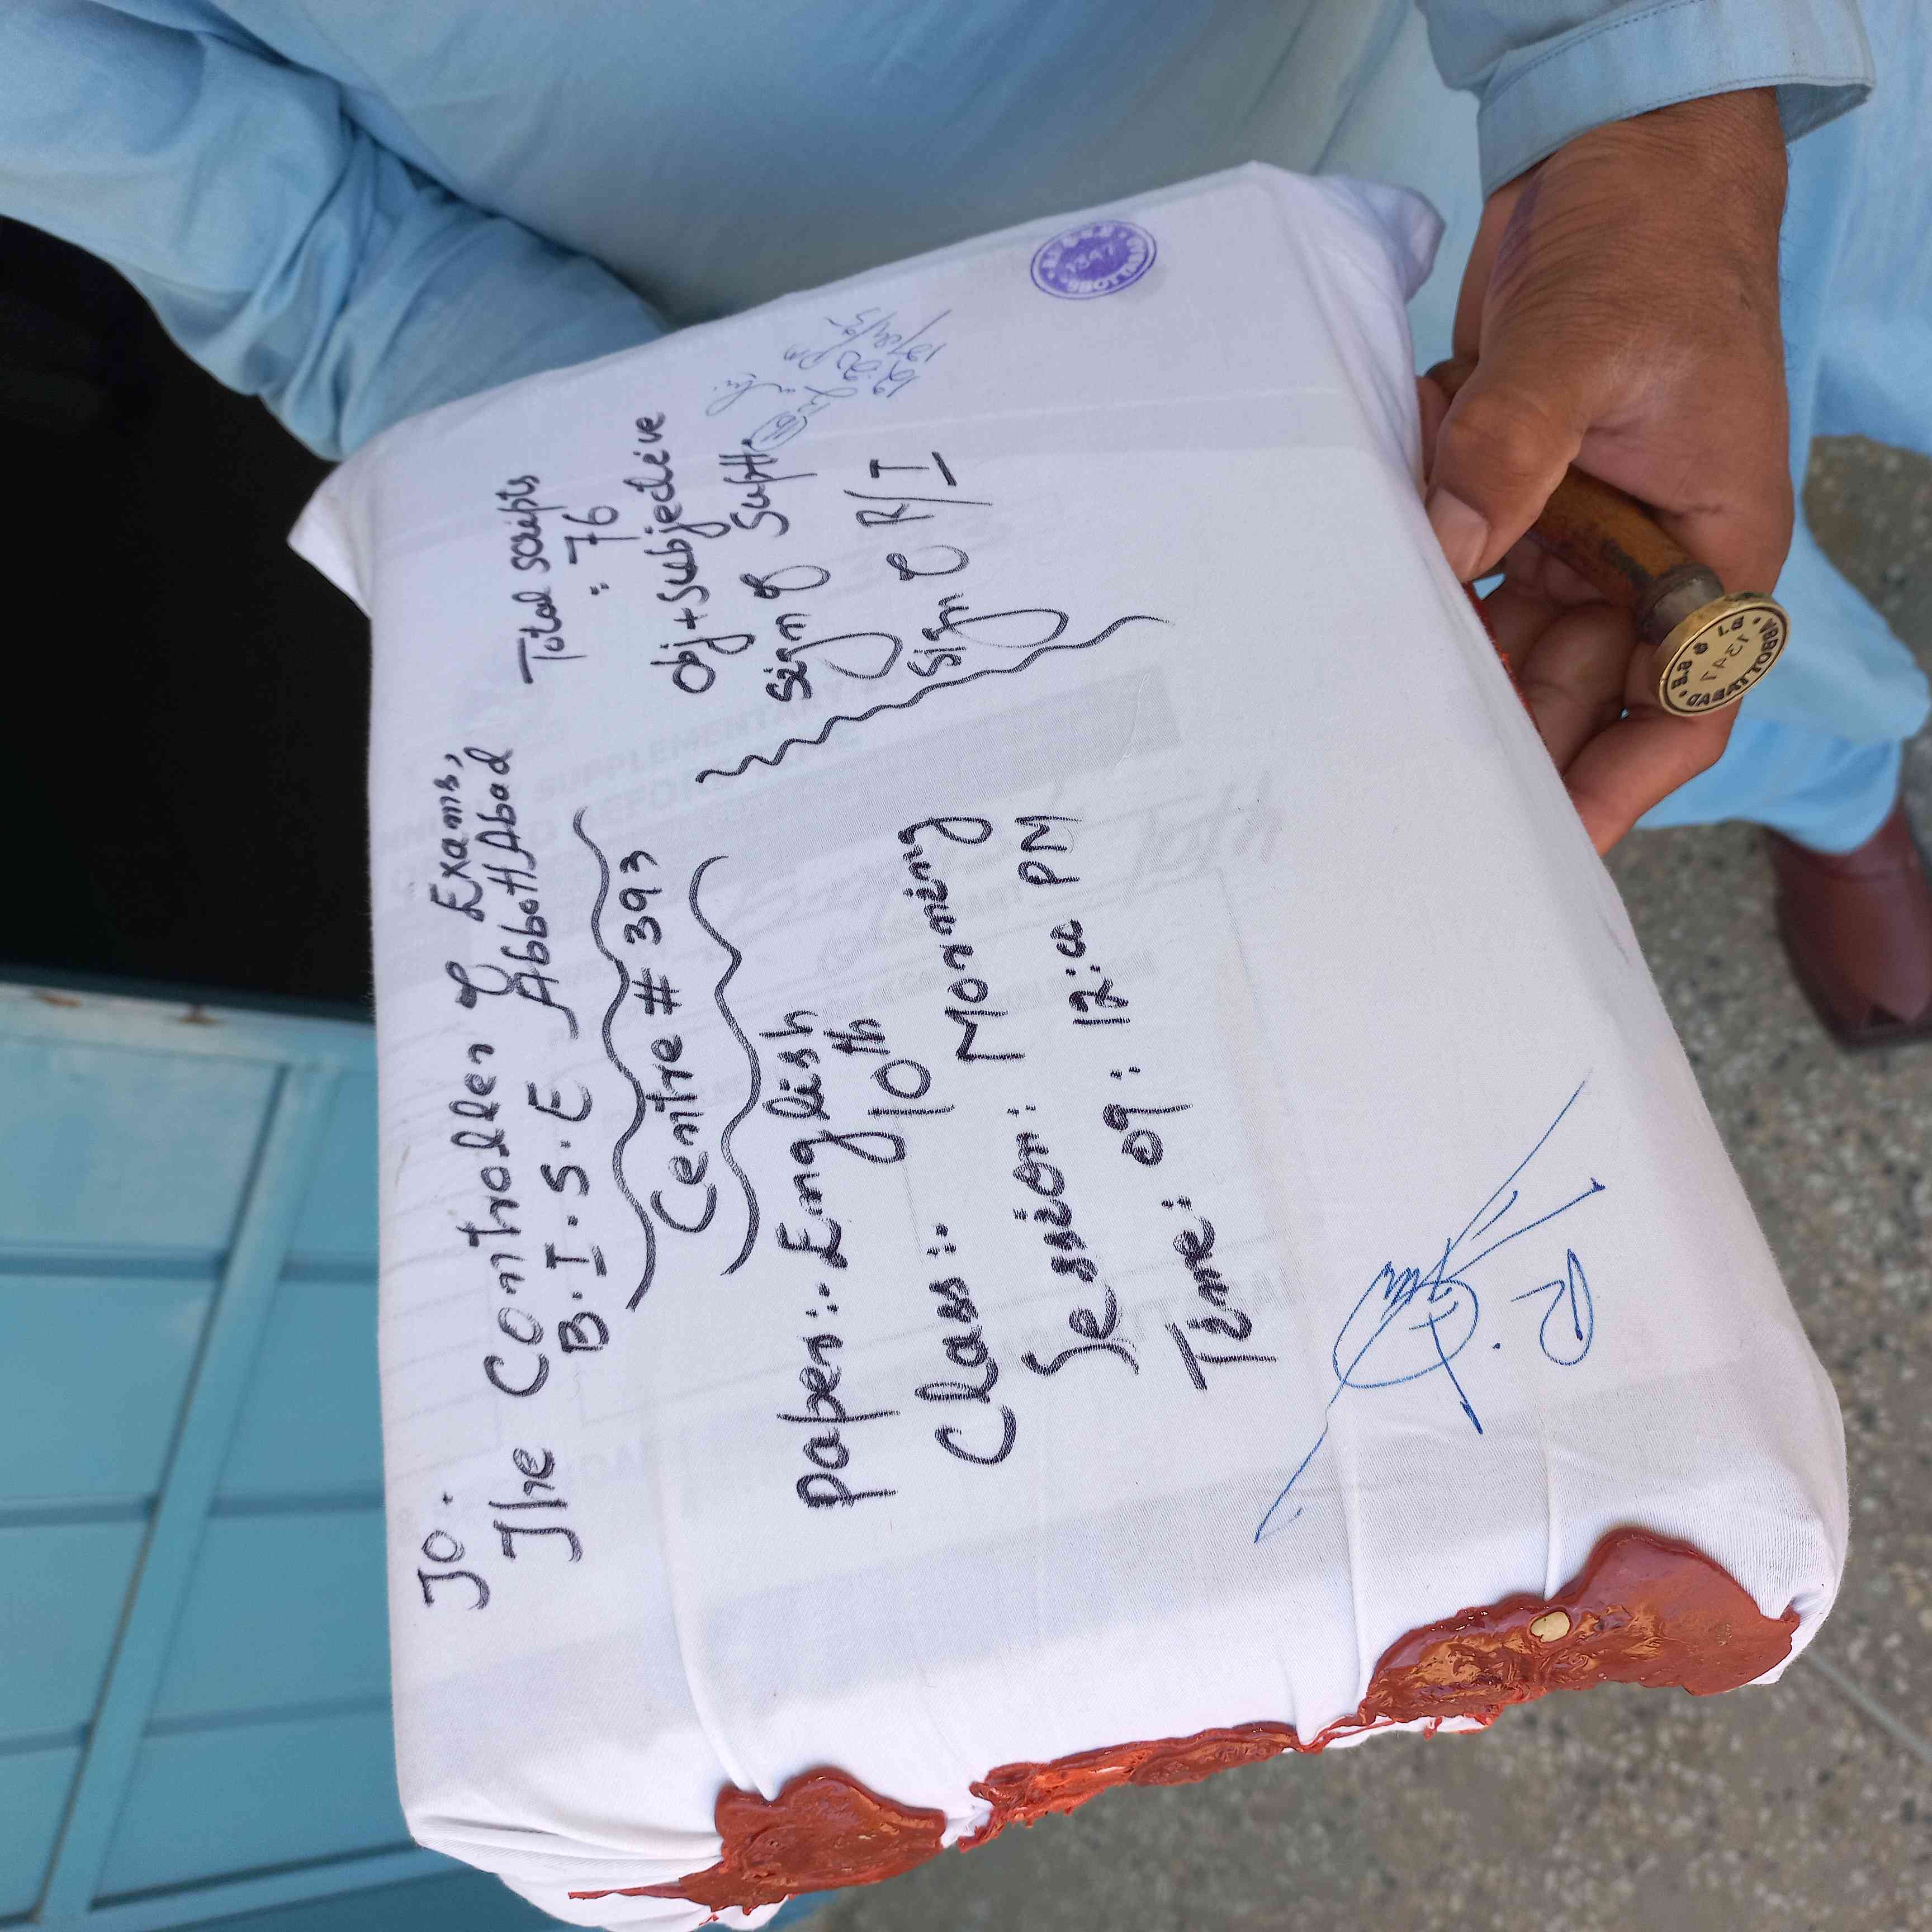 To.
The Controller of Exams,
B.I.S.E Abbott Abad
Centre # 393
Paper:. English
Class:. 10th
Session: Morning
Time: 09: 12:00 PM
Total scripts
: 76
Obj + Subjective
Sign of Suptt.
Sign of R/I
12:25 PM
1347
1347